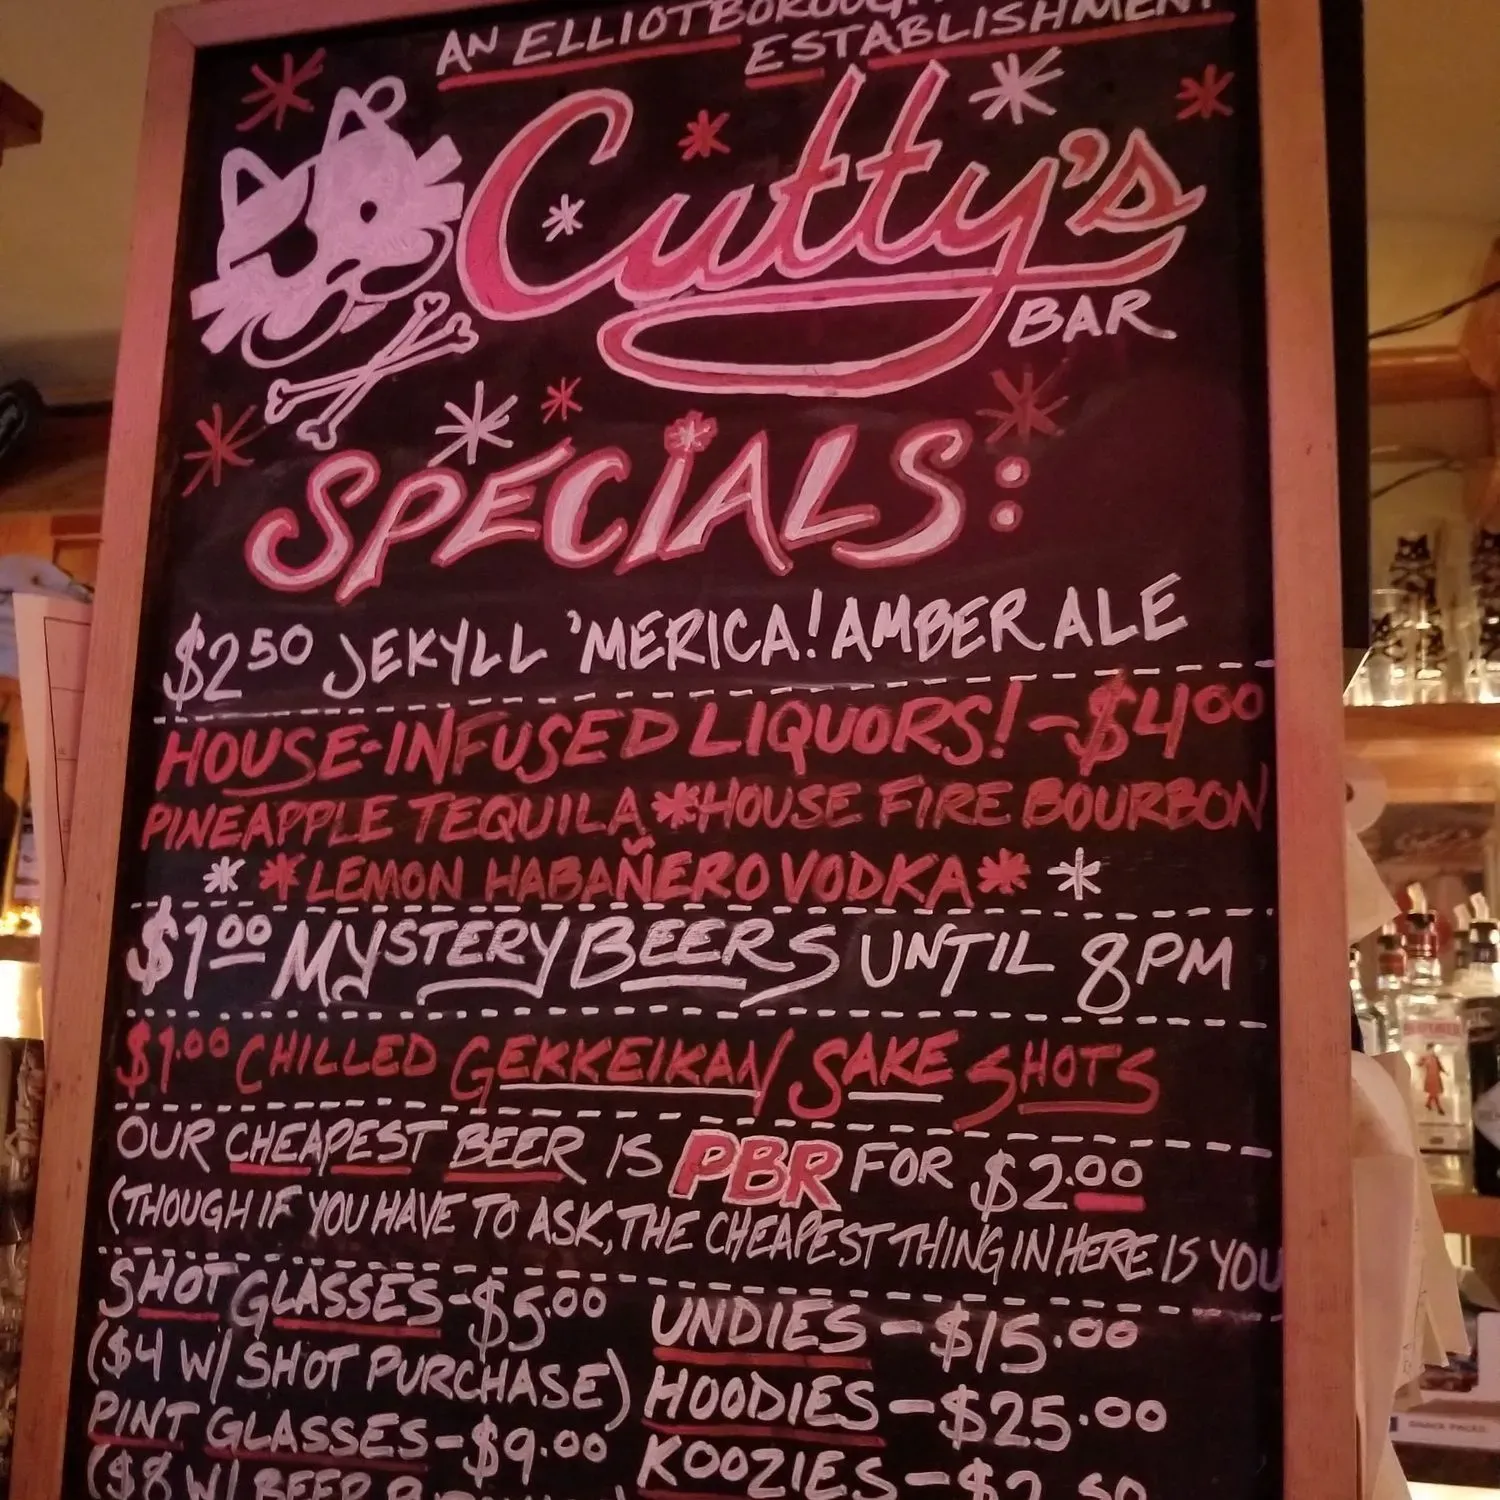 AN ELLIOTBOROUGH
ESTABLISHMENT
Cutty's
BAR
SPECIALS:
$2.50 JEKYLL 'MERICA! AMBER ALE
HOUSE-INFUSED LIQUORS! - $4.00
PINEAPPLE TEQUILA * HOUSE FIRE BOURBON
* * LEMON HABAÑERO VODKA * *
$1.00 MYSTERY BEERS UNTIL 8PM
$1.00 CHILLED GEKKEIKAN SAKE SHOTS
OUR CHEAPEST BEER IS PBR FOR $2.00
(THOUGH IF YOU HAVE TO ASK, THE CHEAPEST THING IN HERE IS YOU
SHOT GLASSES - $5.00
($4 W/ SHOT PURCHASE)
PINT GLASSES - $9.00
($8 W/ BEER
UNDIES - $15.00
HOODIES - $25.00
KOOZIES - $2.50